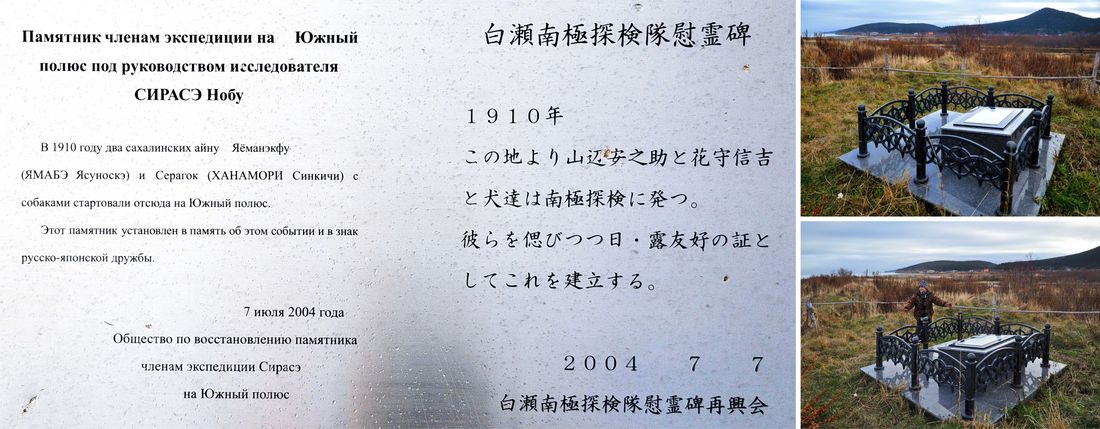 Памятник членам экспедиции на Южный
полюс под руководством исследователя
СИРАСЭ Нобу
В 1910 году два сахалинских айну Яёманэкфу
(ЯМАБЭ Ясуноскэ) и Серагок (ХАНАМОРИ Синкичи) с
собаками стартовали отсюда на Южный полюс.
Этот памятник установлен в память об этом событии и в знак
русско-японской дружбы.
7 июля 2004 года
Общество по восстановлению памятника
членам экспедиции Сирасэ
на Южный полюс
白瀬南極探検隊慰霊碑
1910年
この地より山辺安之助と花守信吉
と犬達は南極探検に発つ。
彼らを偲びつつ日・露友好の証と
してこれを建立する。
2004 7 7
白瀬南極探検隊慰霊碑再興会